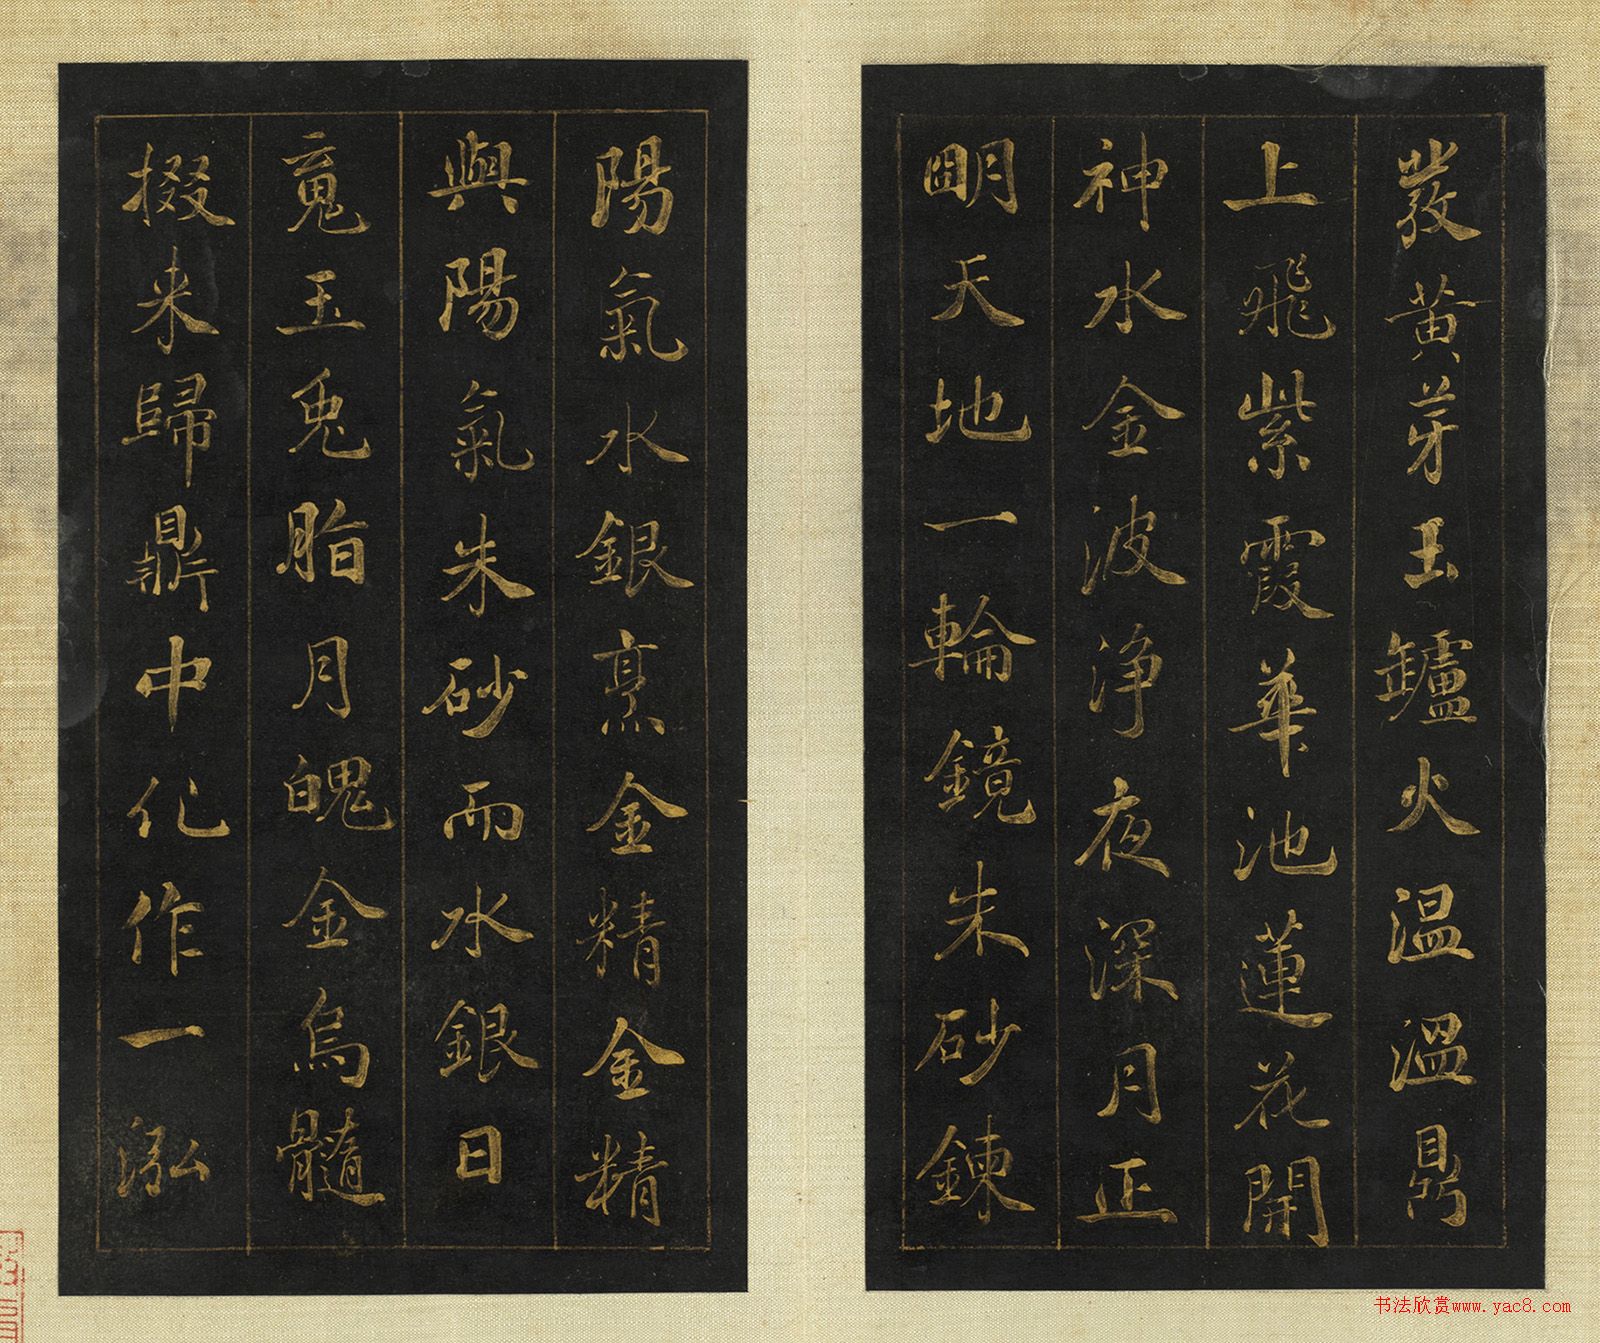 發黃芽玉鑪火温溫鼎
上飛紫霞華池蓮花開
神水金波淨夜深月正
明天地一輪鏡朱砂鍊
陽氣水銀烹金精金精
與陽氣朱砂而水銀日
䰟玉兔脂月魄金烏髓
掇来歸鼎中化作一泓
书法欣赏www.yac8.com